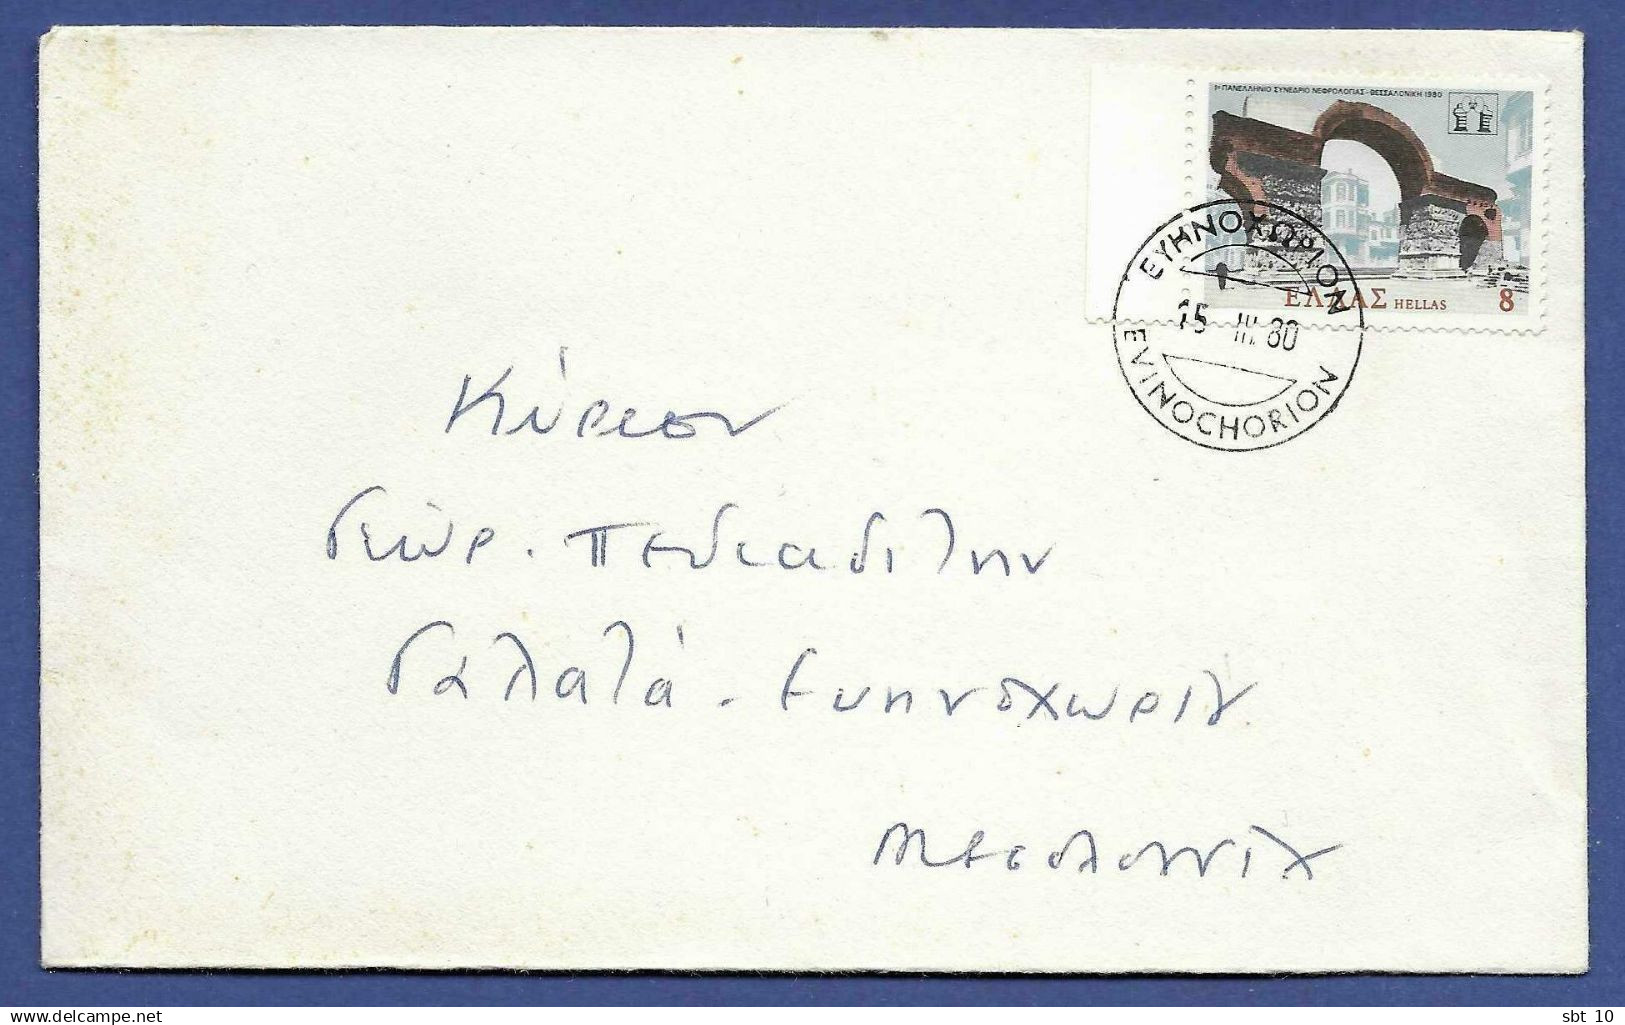 1ο ΠΑΝΕΛΛΗΝΙΟ ΣΥΝΕΔΡΙΟ ΝΕΦΡΟΛΟΓΙΑΣ - ΘΕΣΣΑΛΟΝΙΚΗ 1980
ΕΛΛΑΣ HELLAS 8
ΕΥΗΝΟΧΩΡΙΟΝ
15 III 80
EVINOCHORION
Κύριον
Γεώρ. Πεδιαδίτην
Γαλατά - Ευηνοχωρίου
Μεσολογγίου
delcampe.net
sbt_10